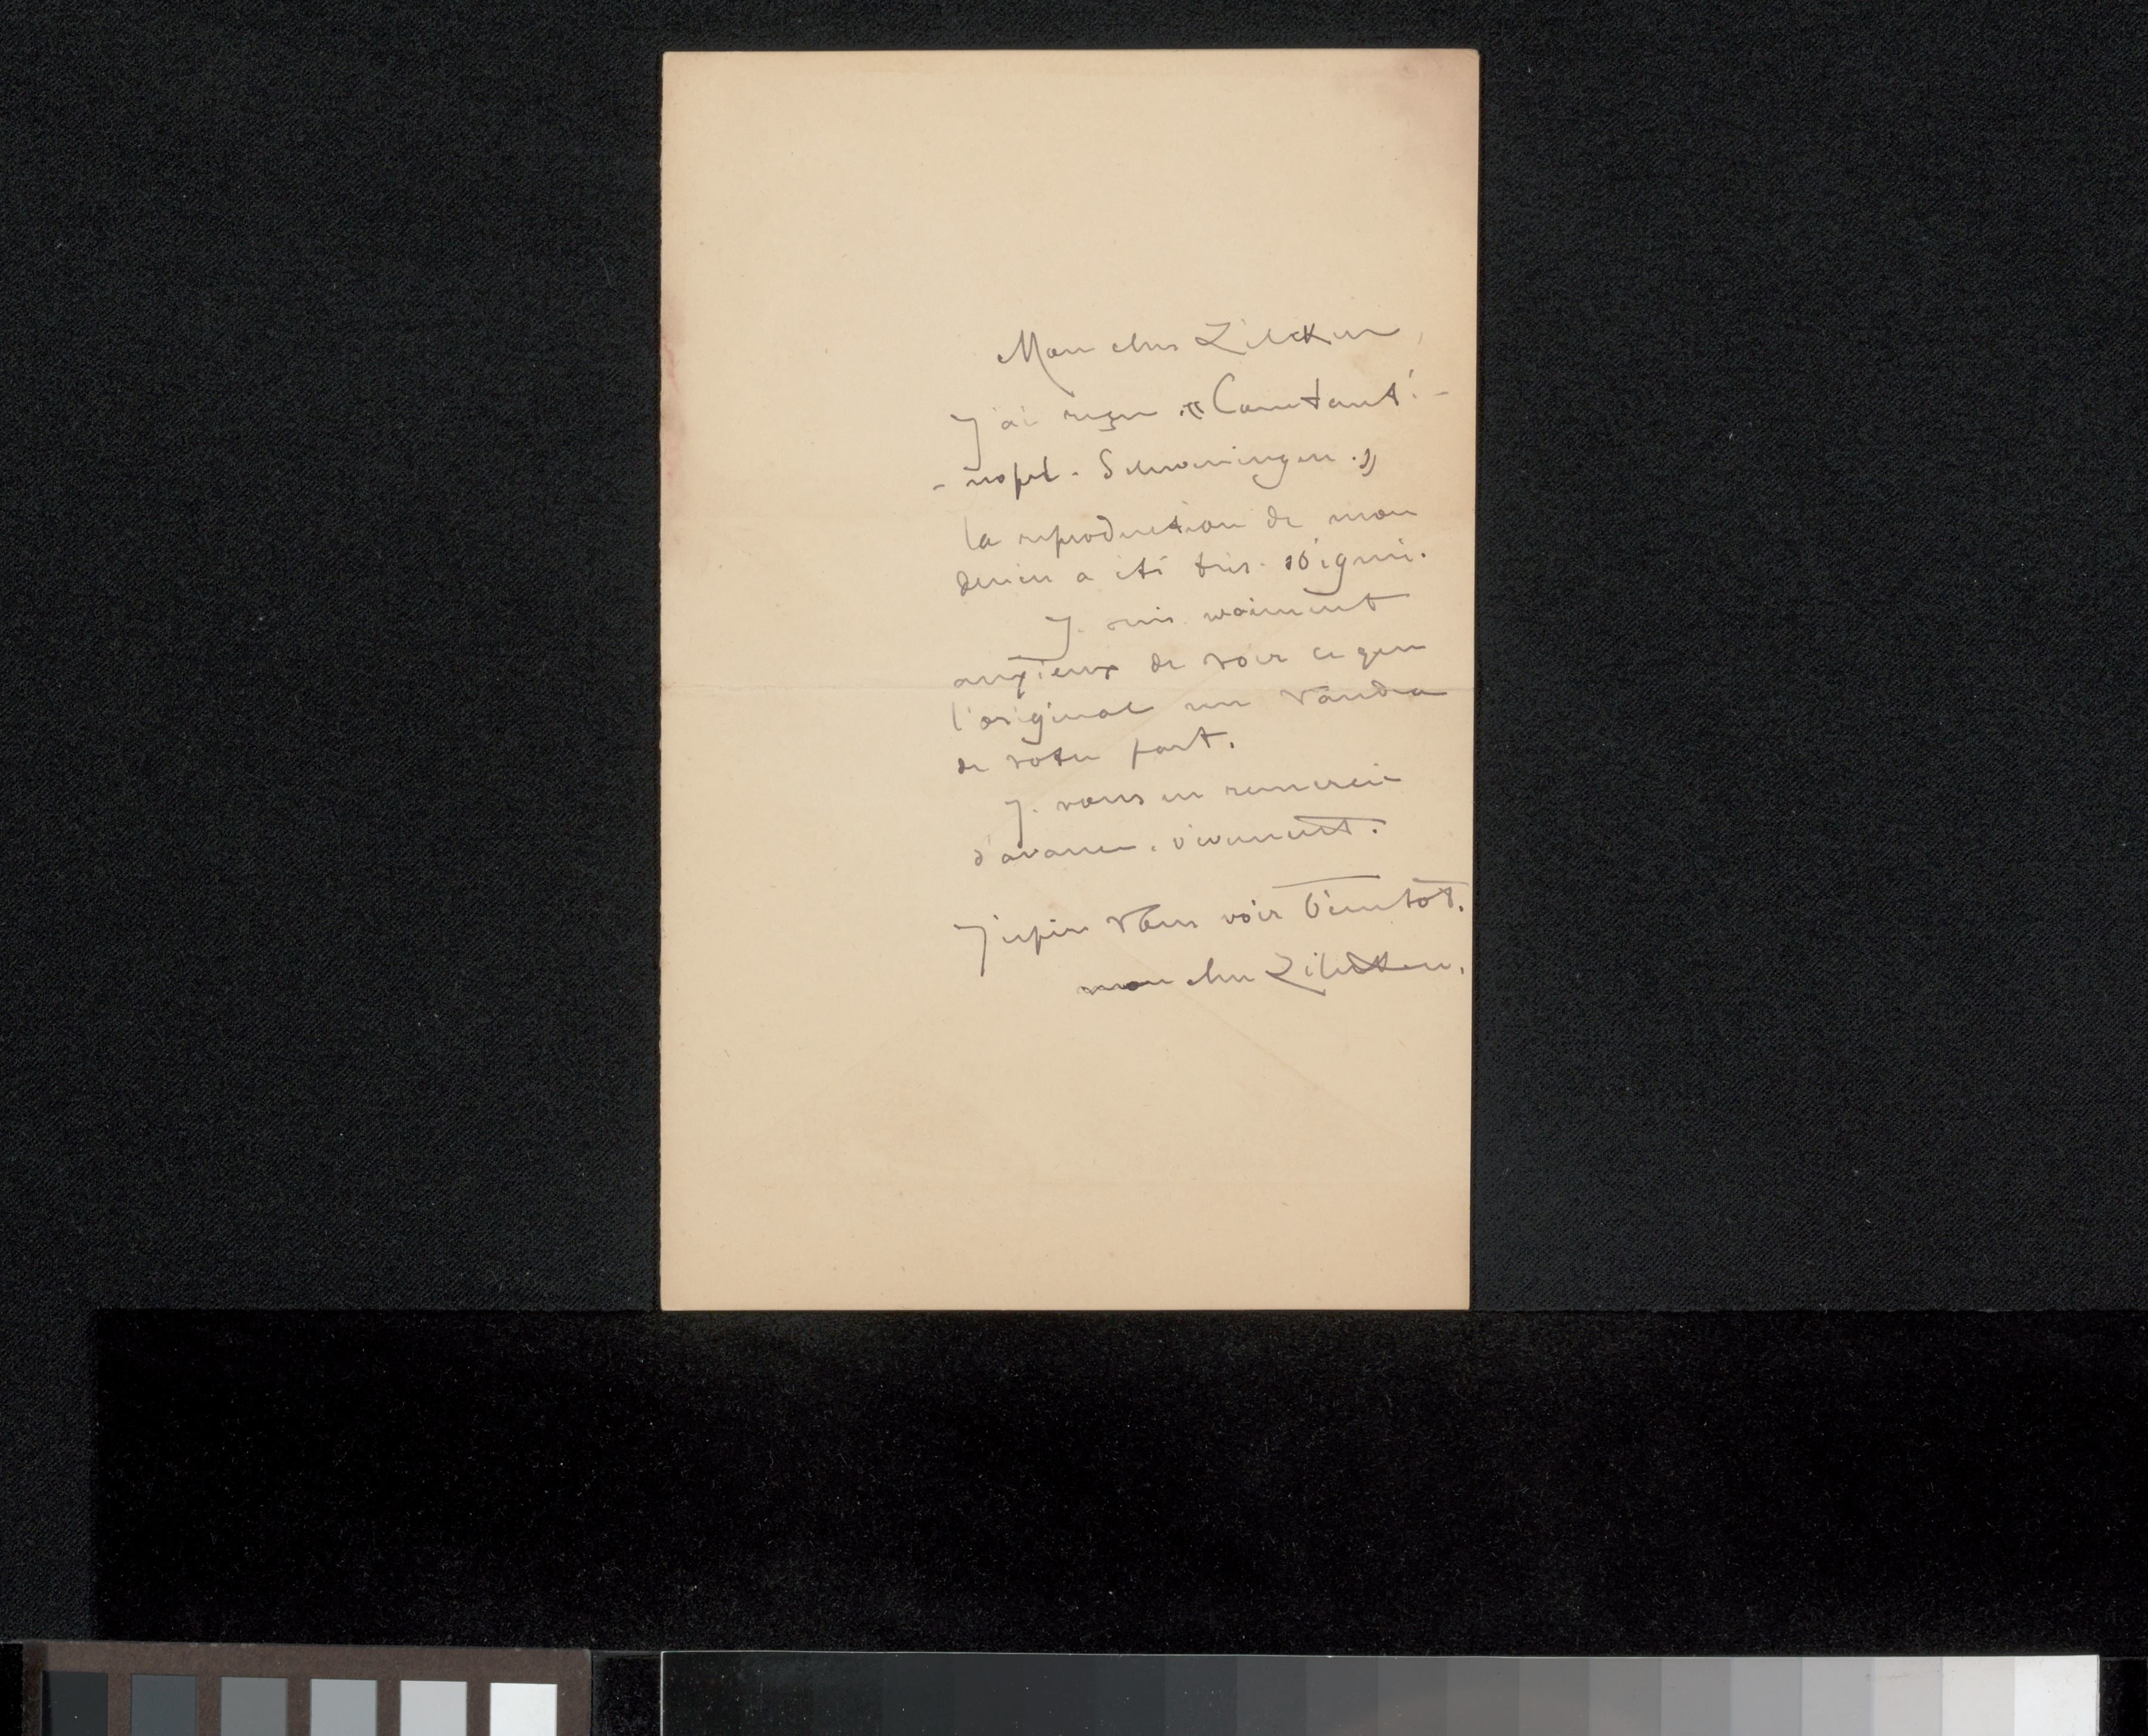 Mon cher Zilcken,
J'ai reçu « Constanti-
- nopel - Scheveningen. »
la reproduction de mon
dessin a été très soigné.
Je suis vraiment
anxieux de voir ce que
l'original me vaudra
de votre part.
Je vous en remercie
d'avance. vivement.
J'espère vous voir bientôt.
mon cher Zilcken.